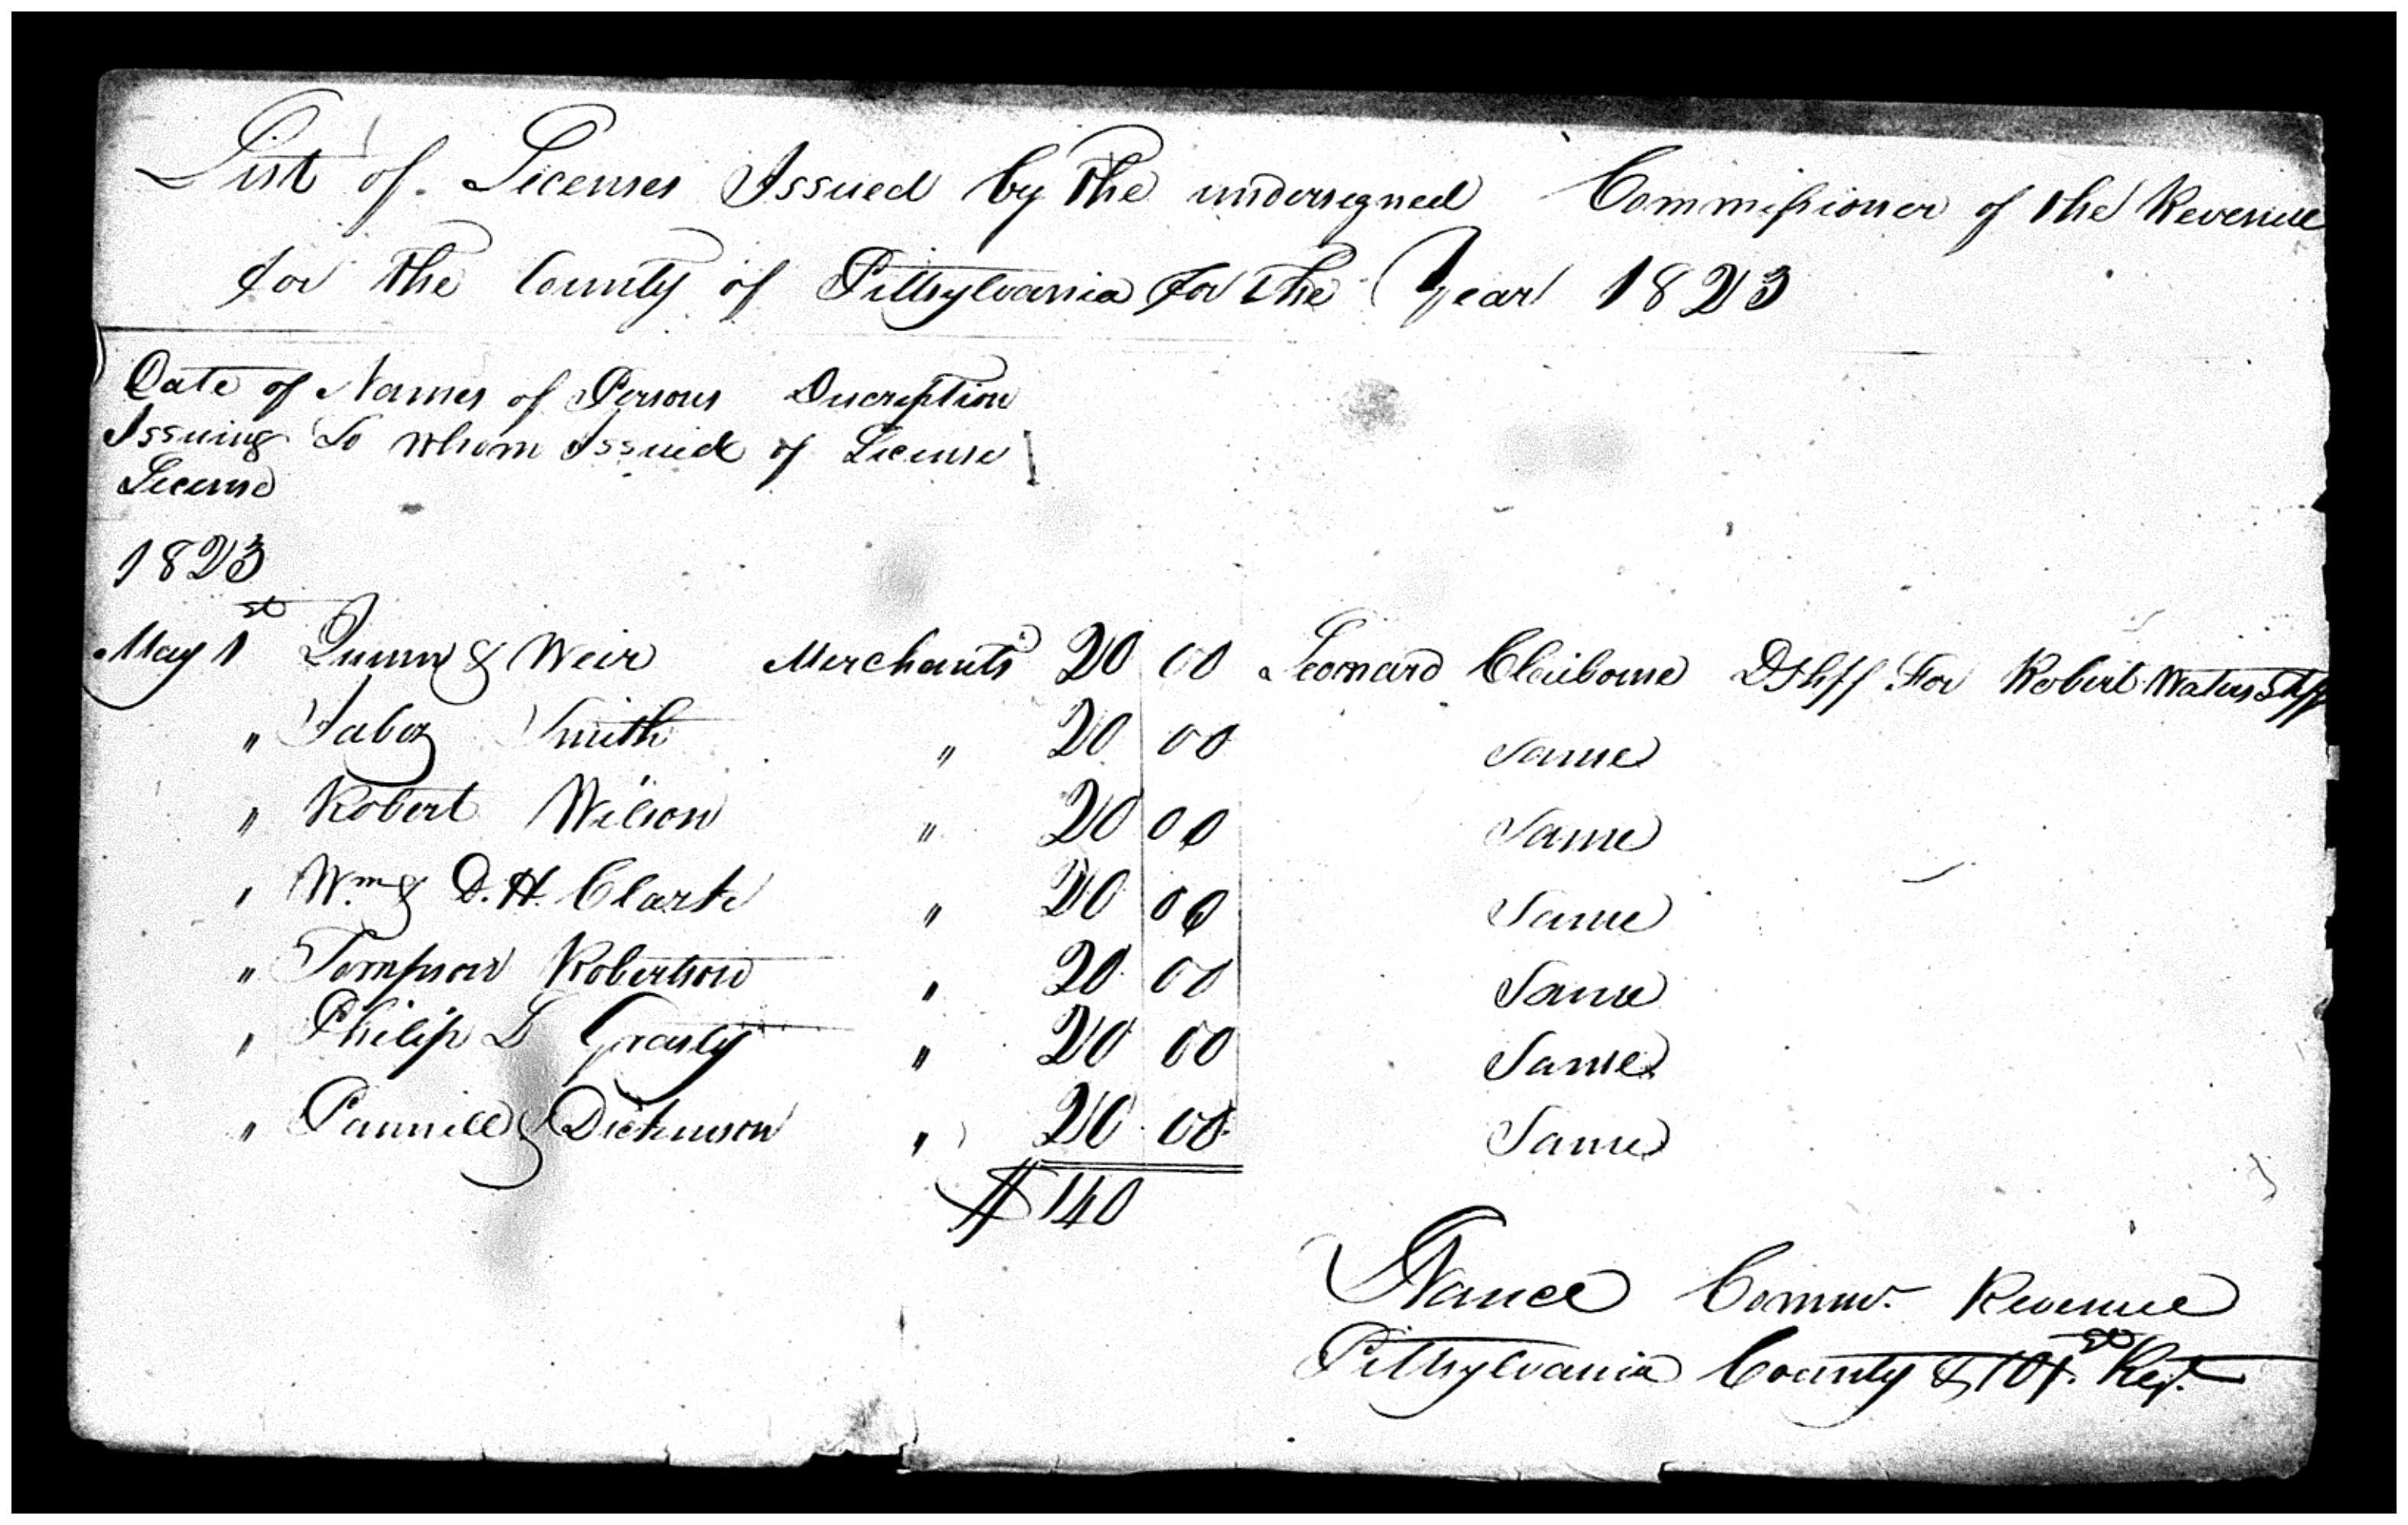 List of Licenses Issued by the undersigned Commissioner of the Revenue
for the County of Pittsylvania for the Year 1823
Date of Names of Persons Description
Issuing To whom Issued of License
License
1823
May 1st Quinn & Weir Merchants 20 00 Leonard Claiborne DShff For Robert Waters Shff
" Jaboz Smith " 20 00 Same
" Robert Wilson " 20 00 Same
" Wm & D. H. Clark " 20 00 Same
" Tompson Robertson " 20 00 Same
" Philip L Grasty " 20 00 Same
" Pannill & Dickinson " 20 00 Same
$ 140
Nance Commr. Revenue
Pittsylvania County & 101. Regt.